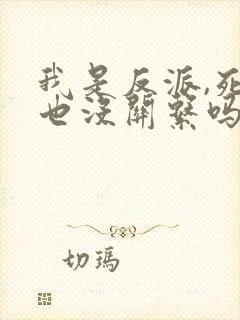 我是反派,死
也没關繫吗
切瑪